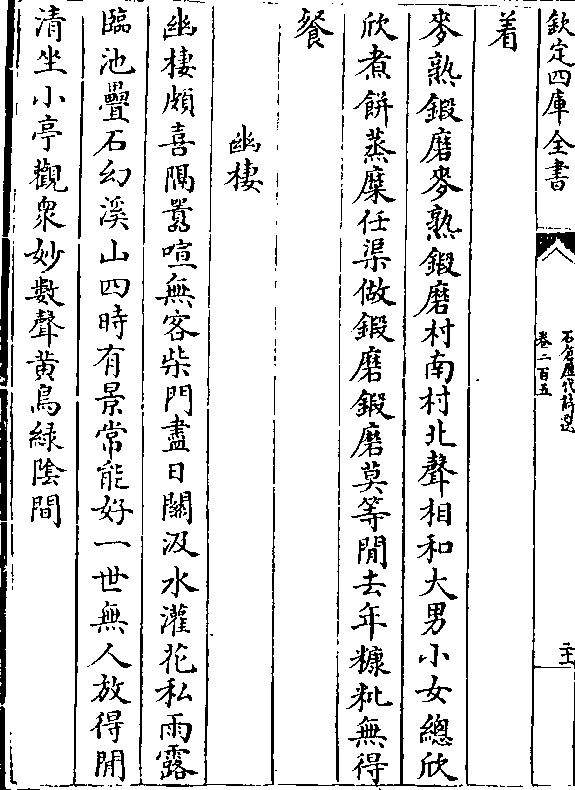 欽定四庫全書
石倉歷代詩選
卷二百五
着
麥熟鍛磨麥熟鍛磨村南村北聲相和大男小女總欣
欣煮餅蒸糜任渠做鍛磨鍛磨莫等閒去年糠籺無得
餐
幽棲
幽棲頗喜隔囂喧無客柴門盡日關汲水灌花私雨露
臨池疊石幻溪山四時有景常能好一世無人放得閒
清坐小亭觀衆妙數聲黃鳥綠陰間